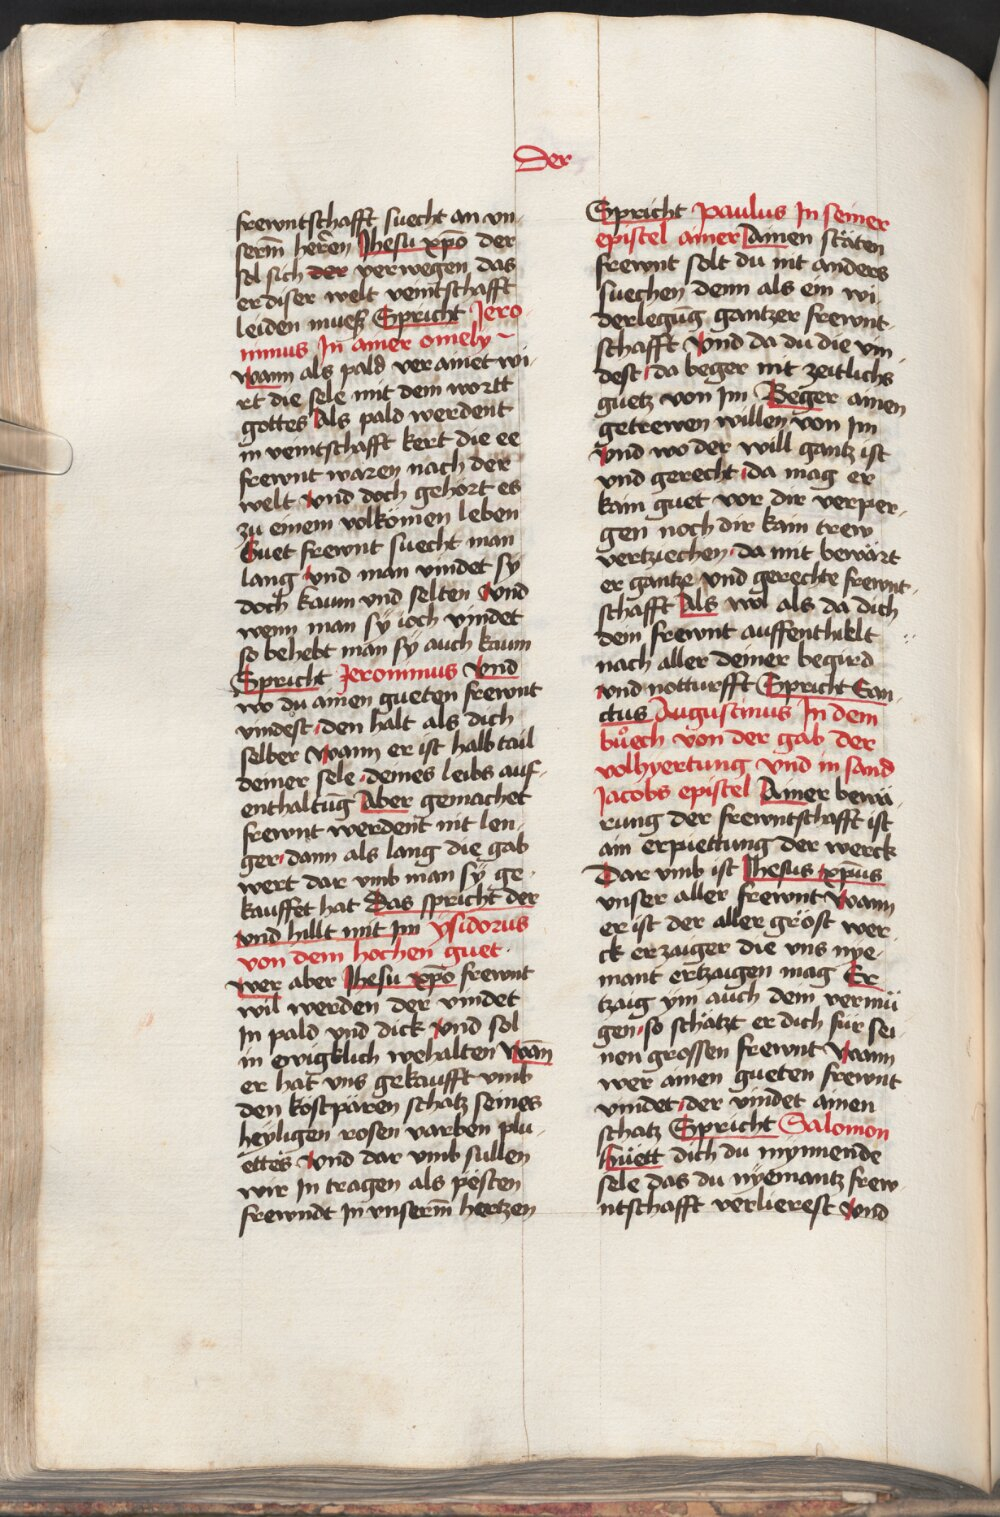 der
frewntschafft suecht an vn-
serm̅ heren Jhesu xp̅o der
sol sich der verwegen das
er diser welt veintschafft
leiden muesz Spricht Jero
nimus In ainer omely ~
wann als pald verainet wi-
rt die sele mit dem wortt
gottes Als pald werdent
in veintschafft kert die ee
frewnt waren nach der
welt Vnd doch gehört es
zu einem volkömen leben
Guet frewnt suecht man
lang Vnd man vindet sÿ
doch kaum vnd selten Vnd
wenn man sÿ ioch vindet
so behebt man sÿ auch kaum
Spricht Jeronimus Vnd
wo du ainen gueten frewnt
vindest den halt als dich
selber Wann er ist halb tail
deiner sele deines leibs auf-
enthaltu̅g Aber gemachet
frewnt werdent nit len-
ger dann als lang die gab
wert dar vmb man sÿ ge-
kauffet hat Das spricht der
vnd hillt mit Im ÿsidorus
von dem hochen guet
Wer aber Jhesu xp̅o frewnt
wil werden der vindet
In pald vnd dick Vnd sol
in ewigklich wehalten Wan̅
er hat vns gekaufft vmb
den kostpären schatz seines
heÿligen rosen varben plu-
ettes Vnd dar vmb sullen
wir In tragen als pesten
frewndt In vnserm̅ hertzen
Spricht Paulus In seiner
epistel ainer Ainen stäten
frewnt solt du nit anders
suechen denn als ein wi-
derlegu̅g gantzer frewnt-
schafft Vnd da du die vin-
dest da beger nit zeitlichs
guetz von Im Beger ainen
getrewen willen von Im
Vnd wo der will gantz ist
vnd gerecht da mag er
kain guet vor dir verper-
gen noch dir kain trew
vertziechen da mit bewärt
er gantze vnd gerechte frewnt-
schafft Als wol als da dich
dein frewnt auffenthiklt
nach aller deiner begird
vnd notturfft Spricht San-
ctus Augustinus In dem
bůech von der gab der
volhyertung Vnd in sand
Jacobs epistel Ainer bewä-
rung der frewntschafft ist
ain erpiettung der werck
Dar vmb ist Jhesus xp̅us
vnser aller frewnt Wann
er ist der aller gröst wer-
ck erzaiger die vns nye-
mant ertzaigen mag Er
tzaig ym auch dein vermü
gen so schätzt er dich für sei-
nen grossen frewnt Wann
wer ainen gueten frewnt
vindet der vindet ainen
schatz Spricht Salomon
Hüett dich du mynnende
sele das du nÿemantz frew
ntschafft verlierest Vnd